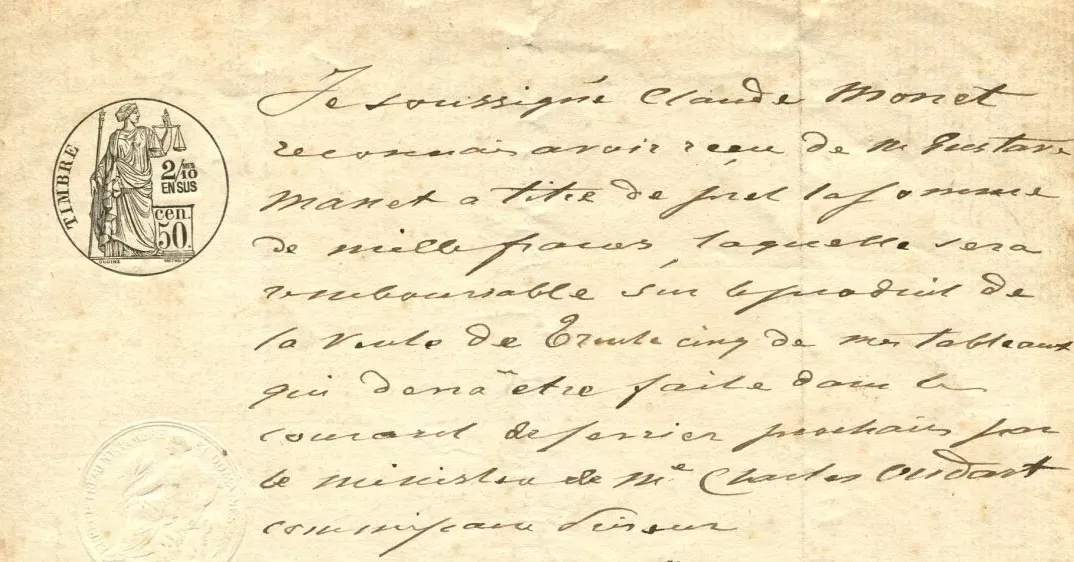 TIMBRE
2/10 EN SUS
cen. 50.
Je soussigné Claude Monet
reconnais avoir reçu de M Gustave
Manet a titre de pret la somme
de mille francs, laquelle sera
remboursable sur le produit de
la vente de Trente cinq de mes tableaux
qui devra etre faite dans le
courant de fevrier prochain par
le ministere de Me Charles Oudart
commissaire priseur